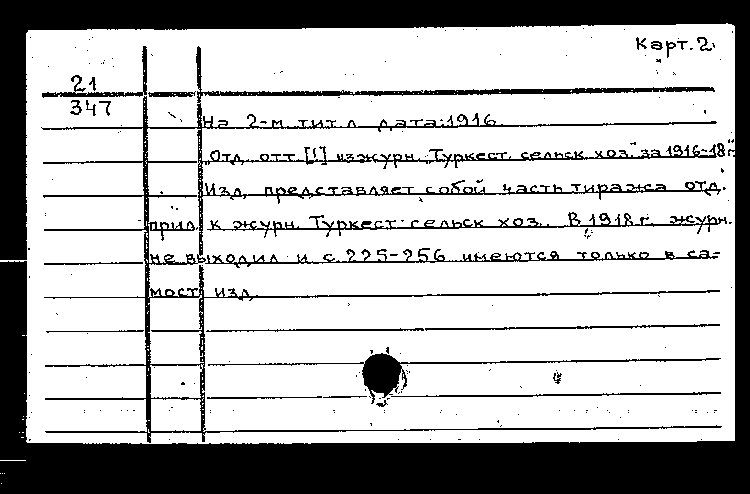 Карт. 2.
21
347
На 2-м тит. л. дата: 1916.
„Отд. отт. [!] из журн. „Туркест. сельск. хоз." за 1916-18 г."
Изд. представляет собой часть тиража отд.
прил. к журн. Туркест. сельск. хоз. В 1918 г. журн.
не выходил и с. 225-256 имеются только в са-
мост. изд.